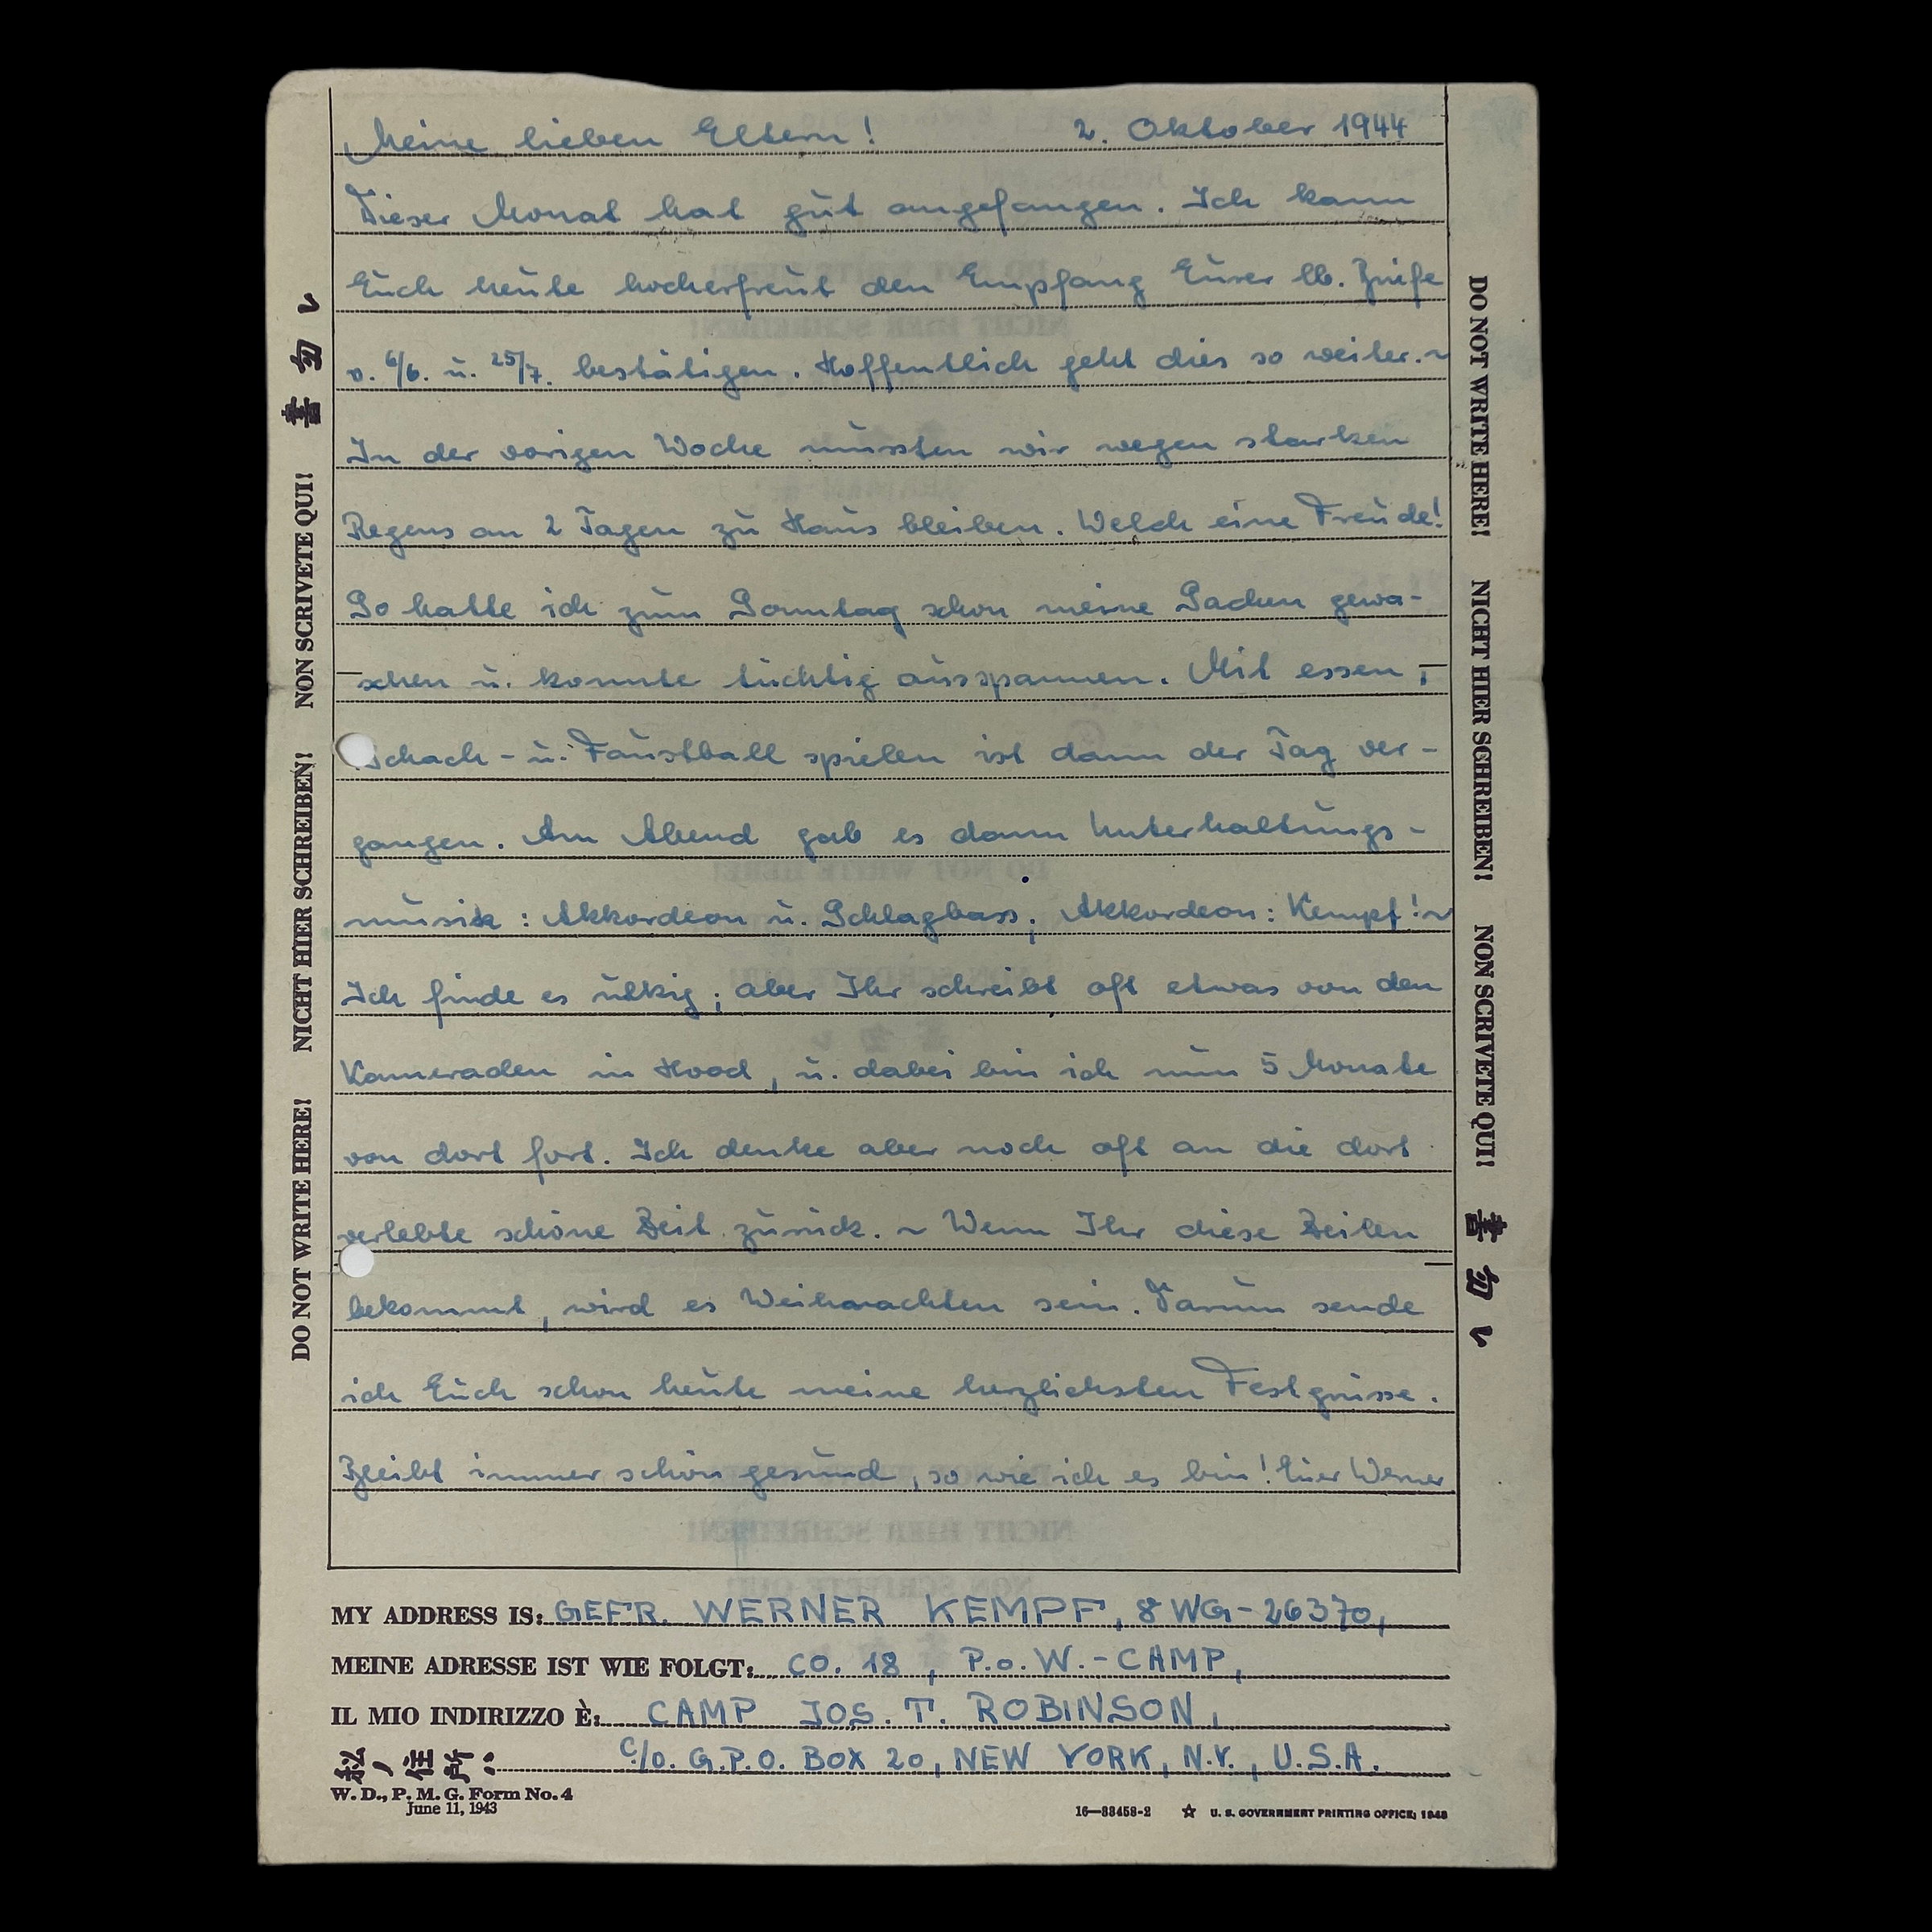 Meine lieben Eltern! 2. Oktober 1944
Dieser Monat hat gut angefangen. Ich kann
Euch heute hocherfreut den Empfang Eurer lb. Briefe
v. 6/6. u. 25/7. bestätigen. Hoffentlich geht dies so weiter. ~
In der vorigen Woche mussten wir wegen starken
Regens an 2 Tagen zu Haus bleiben. Welch eine Freude!
So hatte ich zum Sonntag schon meine Sachen gewa-
schen u. konnte tüchtig ausspannen. Mit essen,
Schach- u. Faustball spielen ist dann der Tag ver-
gangen. Am Abend gab es dann Unterhaltungs-
musik: Akkordeon u. Schlagbass; Akkordeon: Kempf! ~
Ich finde es ulkig; aber Ihr schreibt oft etwas von den
Kameraden in Hood, u. dabei bin ich nun 5 Monate
von dort fort. Ich denke aber noch oft an die dort
verlebte schöne Zeit zurück. ~ Wenn Ihr diese Zeilen
bekommt, wird es Weihnachten sein. Darum sende
ich Euch schon heute meine herzlichsten Festgrüsse.
Bleibt immer schön gesund, so wie ich es bin! Euer Werner
MY ADDRESS IS: GEFR. WERNER KEMPF, 8 WG-26370,
MEINE ADRESSE IST WIE FOLGT: CO. 18, P.o.W.-CAMP,
IL MIO INDIRIZZO È: CAMP JOS. T. ROBINSON,
私ノ住所: C/O. G.P.O. BOX 20, NEW YORK, N.Y., U.S.A.
W. D., P. M. G. Form No. 4
June 11, 1943
16—33458-2 ☆ U. S. GOVERNMENT PRINTING OFFICE: 1943
DO NOT WRITE HERE! NICHT HIER SCHREIBEN! NON SCRIVETE QUI! 書勿レ
DO NOT WRITE HERE! NICHT HIER SCHREIBEN! NON SCRIVETE QUI! 書勿レ